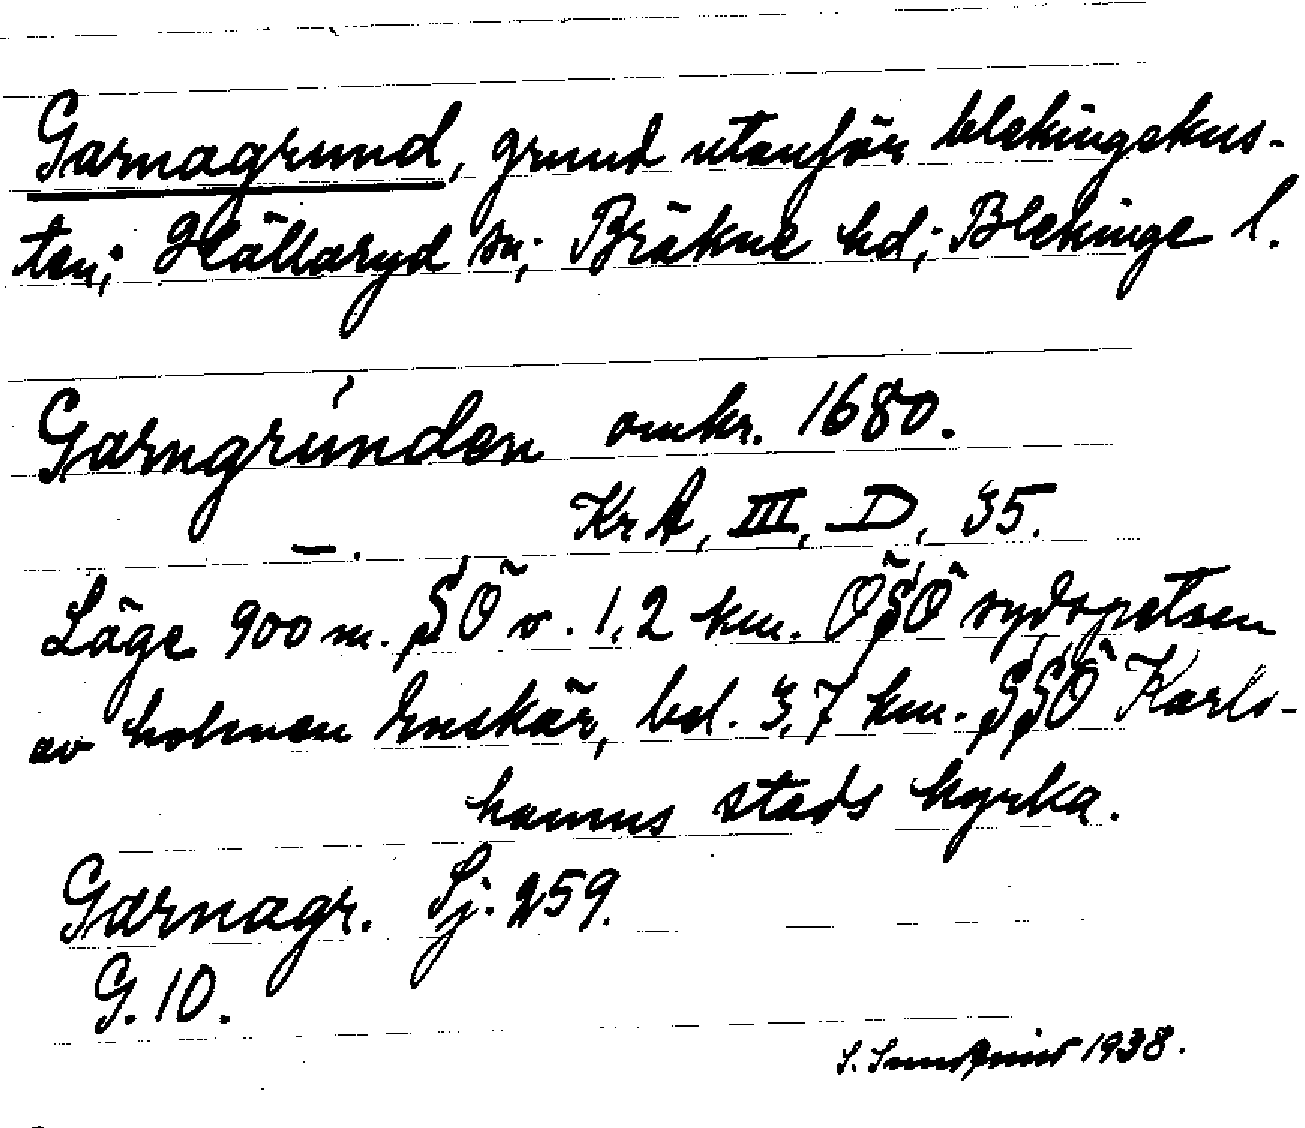 Garnagrund, grund utanför blekingekus-
ten; Hällaryd sn; Bräkne hd; Blekinge l.
Garngrúnden omkr. 1680.
Kr A, III, D, 35.
—.
Läge 900 m. SÖ v. 1,2 km. ÖSÖ sydspetsen
av holmen Enskär, bel. 3,7 km. SSÖ Karls-
hamns stads kyrka.
Garnagr. Sj. 259.
G. 10.
S. Sundquist 1938.